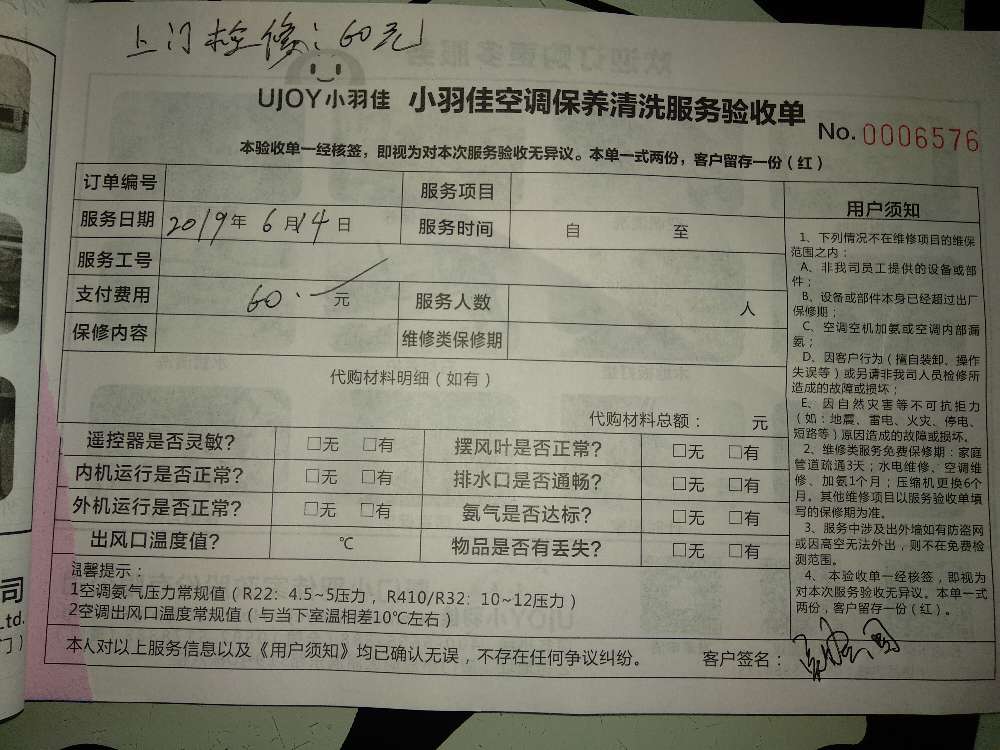 上门检修：60元
UJOY小羽佳 小羽佳空调保养清洗服务验收单
No. 0006576
本验收单一经核签，即视为对本次服务验收无异议。本单一式两份，客户留存一份（红）
订单编号 服务项目
服务日期 2019年 6月14日 服务时间 自 至
服务工号
支付费用 60. 元 服务人数 人
保修内容 维修类保修期
代购材料明细（如有）
代购材料总额： 元
遥控器是否灵敏? □无 □有 摆风叶是否正常? □无 □有
内机运行是否正常? □无 □有 排水口是否通畅? □无 □有
外机运行是否正常? □无 □有 氨气是否达标? □无 □有
出风口温度值? ℃ 物品是否有丢失? □无 □有
温馨提示：
1空调氨气压力常规值（R22：4.5~5压力，R410/R32：10~12压力）
2空调出风口温度常规值（与当下室温相差10℃左右）
本人对以上服务信息以及《用户须知》均已确认无误，不存在任何争议纠纷。 客户签名：
用户须知
1、下列情况不在维修项目的维保
范围之内：
A、非我司员工提供的设备或部
件；
B、设备或部件本身已经超过出厂
保修期；
C、空调空机加氨或空调内部漏
氨；
D、因客户行为（擅自装卸、操作
失误等）或另请非我司人员检修所
造成的故障或损坏；
E、因自然灾害等不可抗拒力
（如：地震、雷电、火灾、停电、
短路等）原因造成的故障或损坏。
2、维修类服务免费保修期：家庭
管道疏通3天；水电维修、空调维
修、加氨1个月；压缩机更换6个
月。其他维修项目以服务验收单填
写的保修期为准。
3、服务中涉及出外墙如有防盗网
或因高空无法外出，则不在免费检
测范围。
4、本验收单一经核签，即视为
对本次服务验收无异议。本单一式
两份，客户留存一份（红）。
司
Ltd.
门）